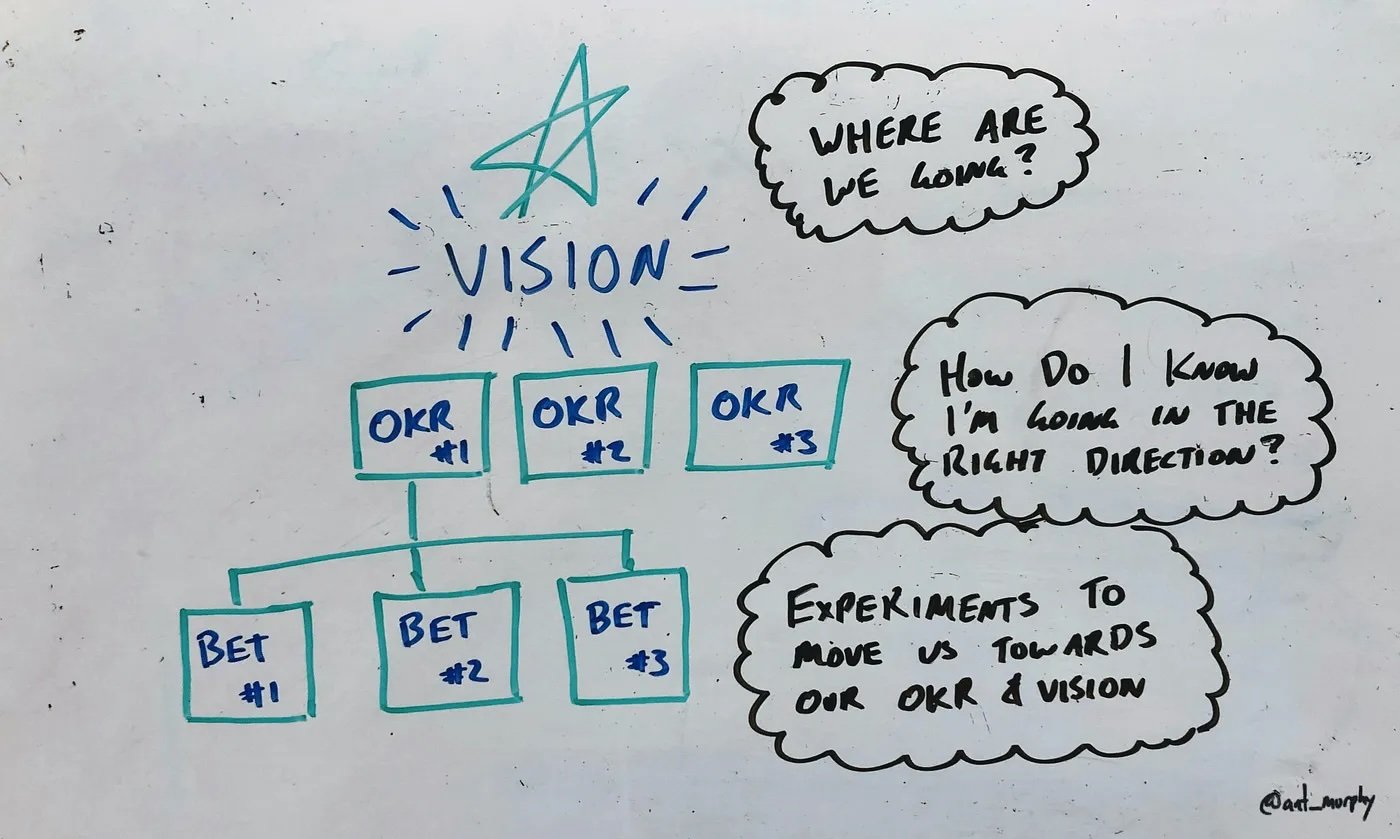 WHERE ARE
WE GOING?
VISION
OKR
#1
OKR
#2
OKR
#3
HOW DO I KNOW
I'M GOING IN THE
RIGHT DIRECTION?
BET
#1
BET
#2
BET
#3
EXPERIMENTS TO
MOVE US TOWARDS
OUR OKR & VISION
@ant_murphy